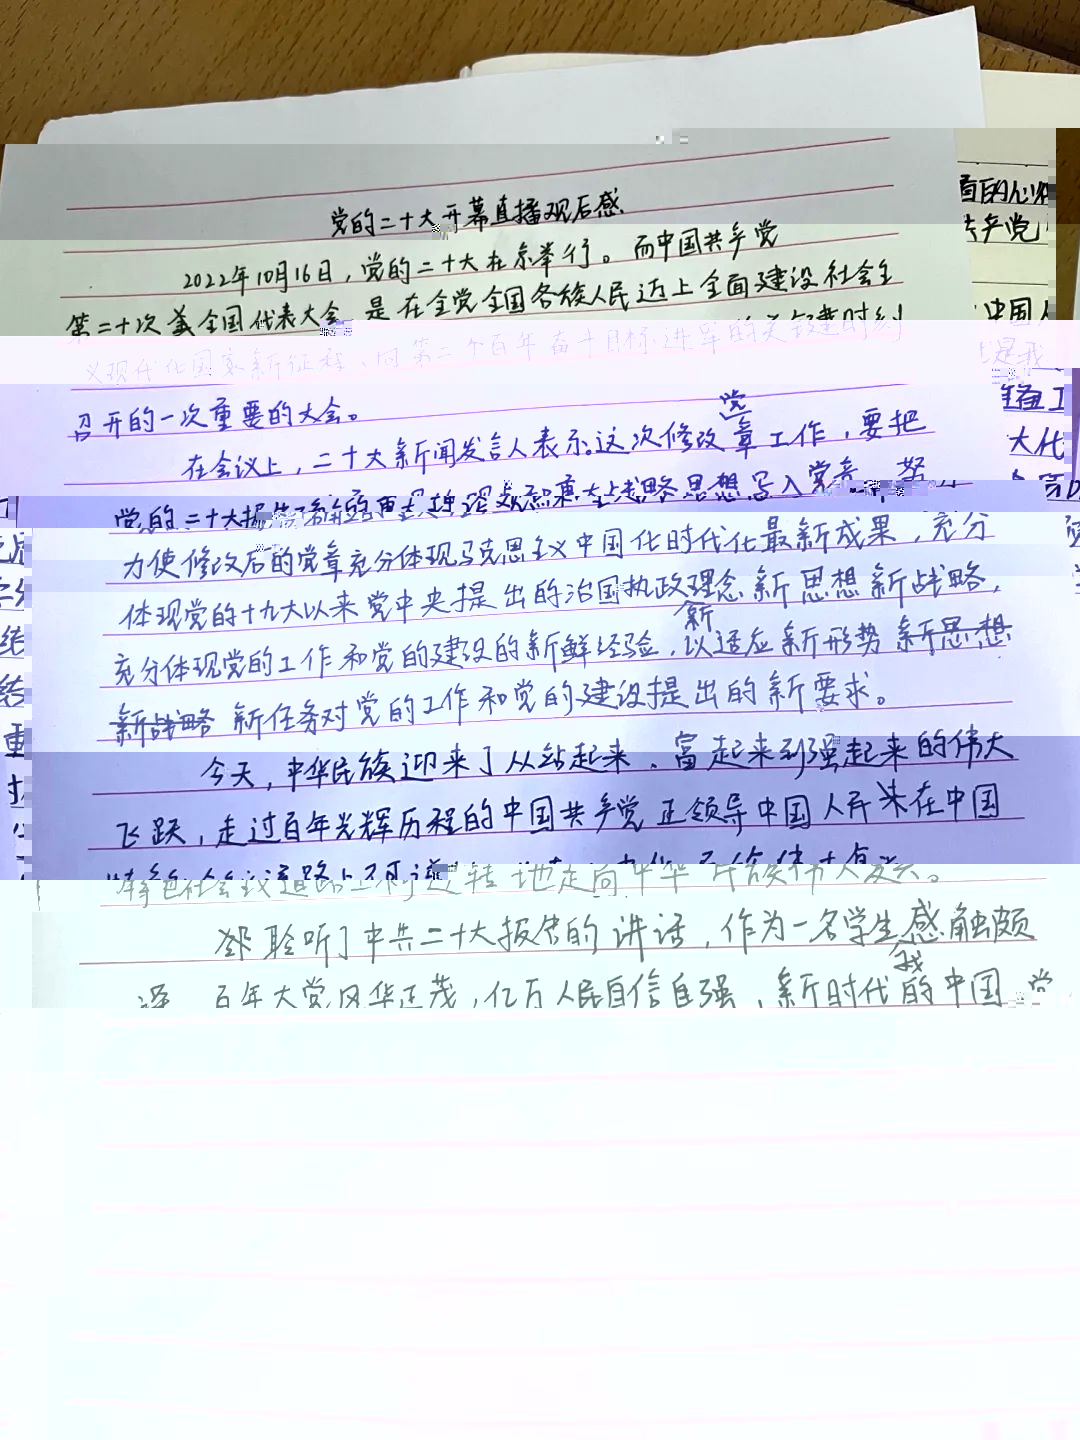 党的二十大开幕直播观后感
2022年10月16日,党的二十大在京举行。而中国共产党
第二十次全国代表大会 是在全党全国各族人民迈上全面建设社会主
义现代化国家新征程、向第二个百年奋斗目标进军的关键时刻
召开的一次重要的大会。
在会议上,二十大新闻发言人表示这次修改党章工作,要把
党的二十大报告 重大战略思想写入党章 努
力使修改后的党章充分体现马克思主义中国化时代化最新成果,充分
体现党的十九大以来党中央提出的治国执政理念新思想新战略,
充分体现党的工作和党的建设的新鲜经验,以适应新形势新思想
新战略 新任务对党的工作和党的建设提出的新要求。
今天,中华民族迎来了从站起来、富起来到强起来的伟大
飞跃,走过百年光辉历程的中国共产党正领导中国人民 在中国
特色社会主义道路上 地走向中华民族伟大复兴。
聆听了中共二十大报告的讲话,作为一名学生感触颇
深 百年大党风华正茂,亿万人民自信自强,新时代的中国